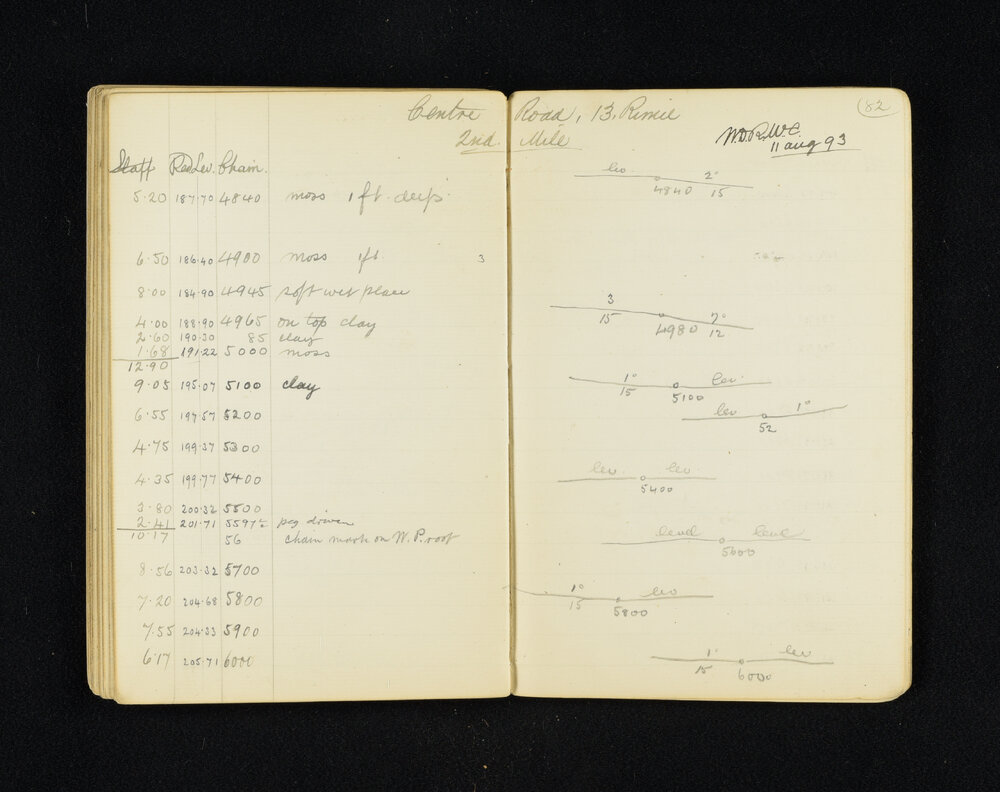 Centre Road, 13, Rimu
2nd. Mile
82
11 aug 93
Staff Red Lev. Chain.
5.20 187.70 4840 moss 1 ft. deep
6.50 186.40 4900 moss 1 ft. 3
8.00 184.90 4945 soft wet place
4.00 188.90 4965 on top clay
2.60 190.30 85 clay
1.68 191.22 5000 moss
12.90
9.05 195.07 5100 clay
6.55 197.57 5200
4.75 199.37 5300
4.35 199.77 5400
3.80 200.32 5500
2.41 201.71 5597½ peg driven
10.17 56 chain mark on W.P. root
8.56 203.32 5700
7.20 204.68 5800
7.55 204.33 5900
6.17 205.71 6000
lev. 2°
4840 15
3 7°
15 4980 12
1° lev.
15 5100
lev 1°
52
lev. lev.
5400
level level
5600
1° lev
15 5800
1° lev
15 6000